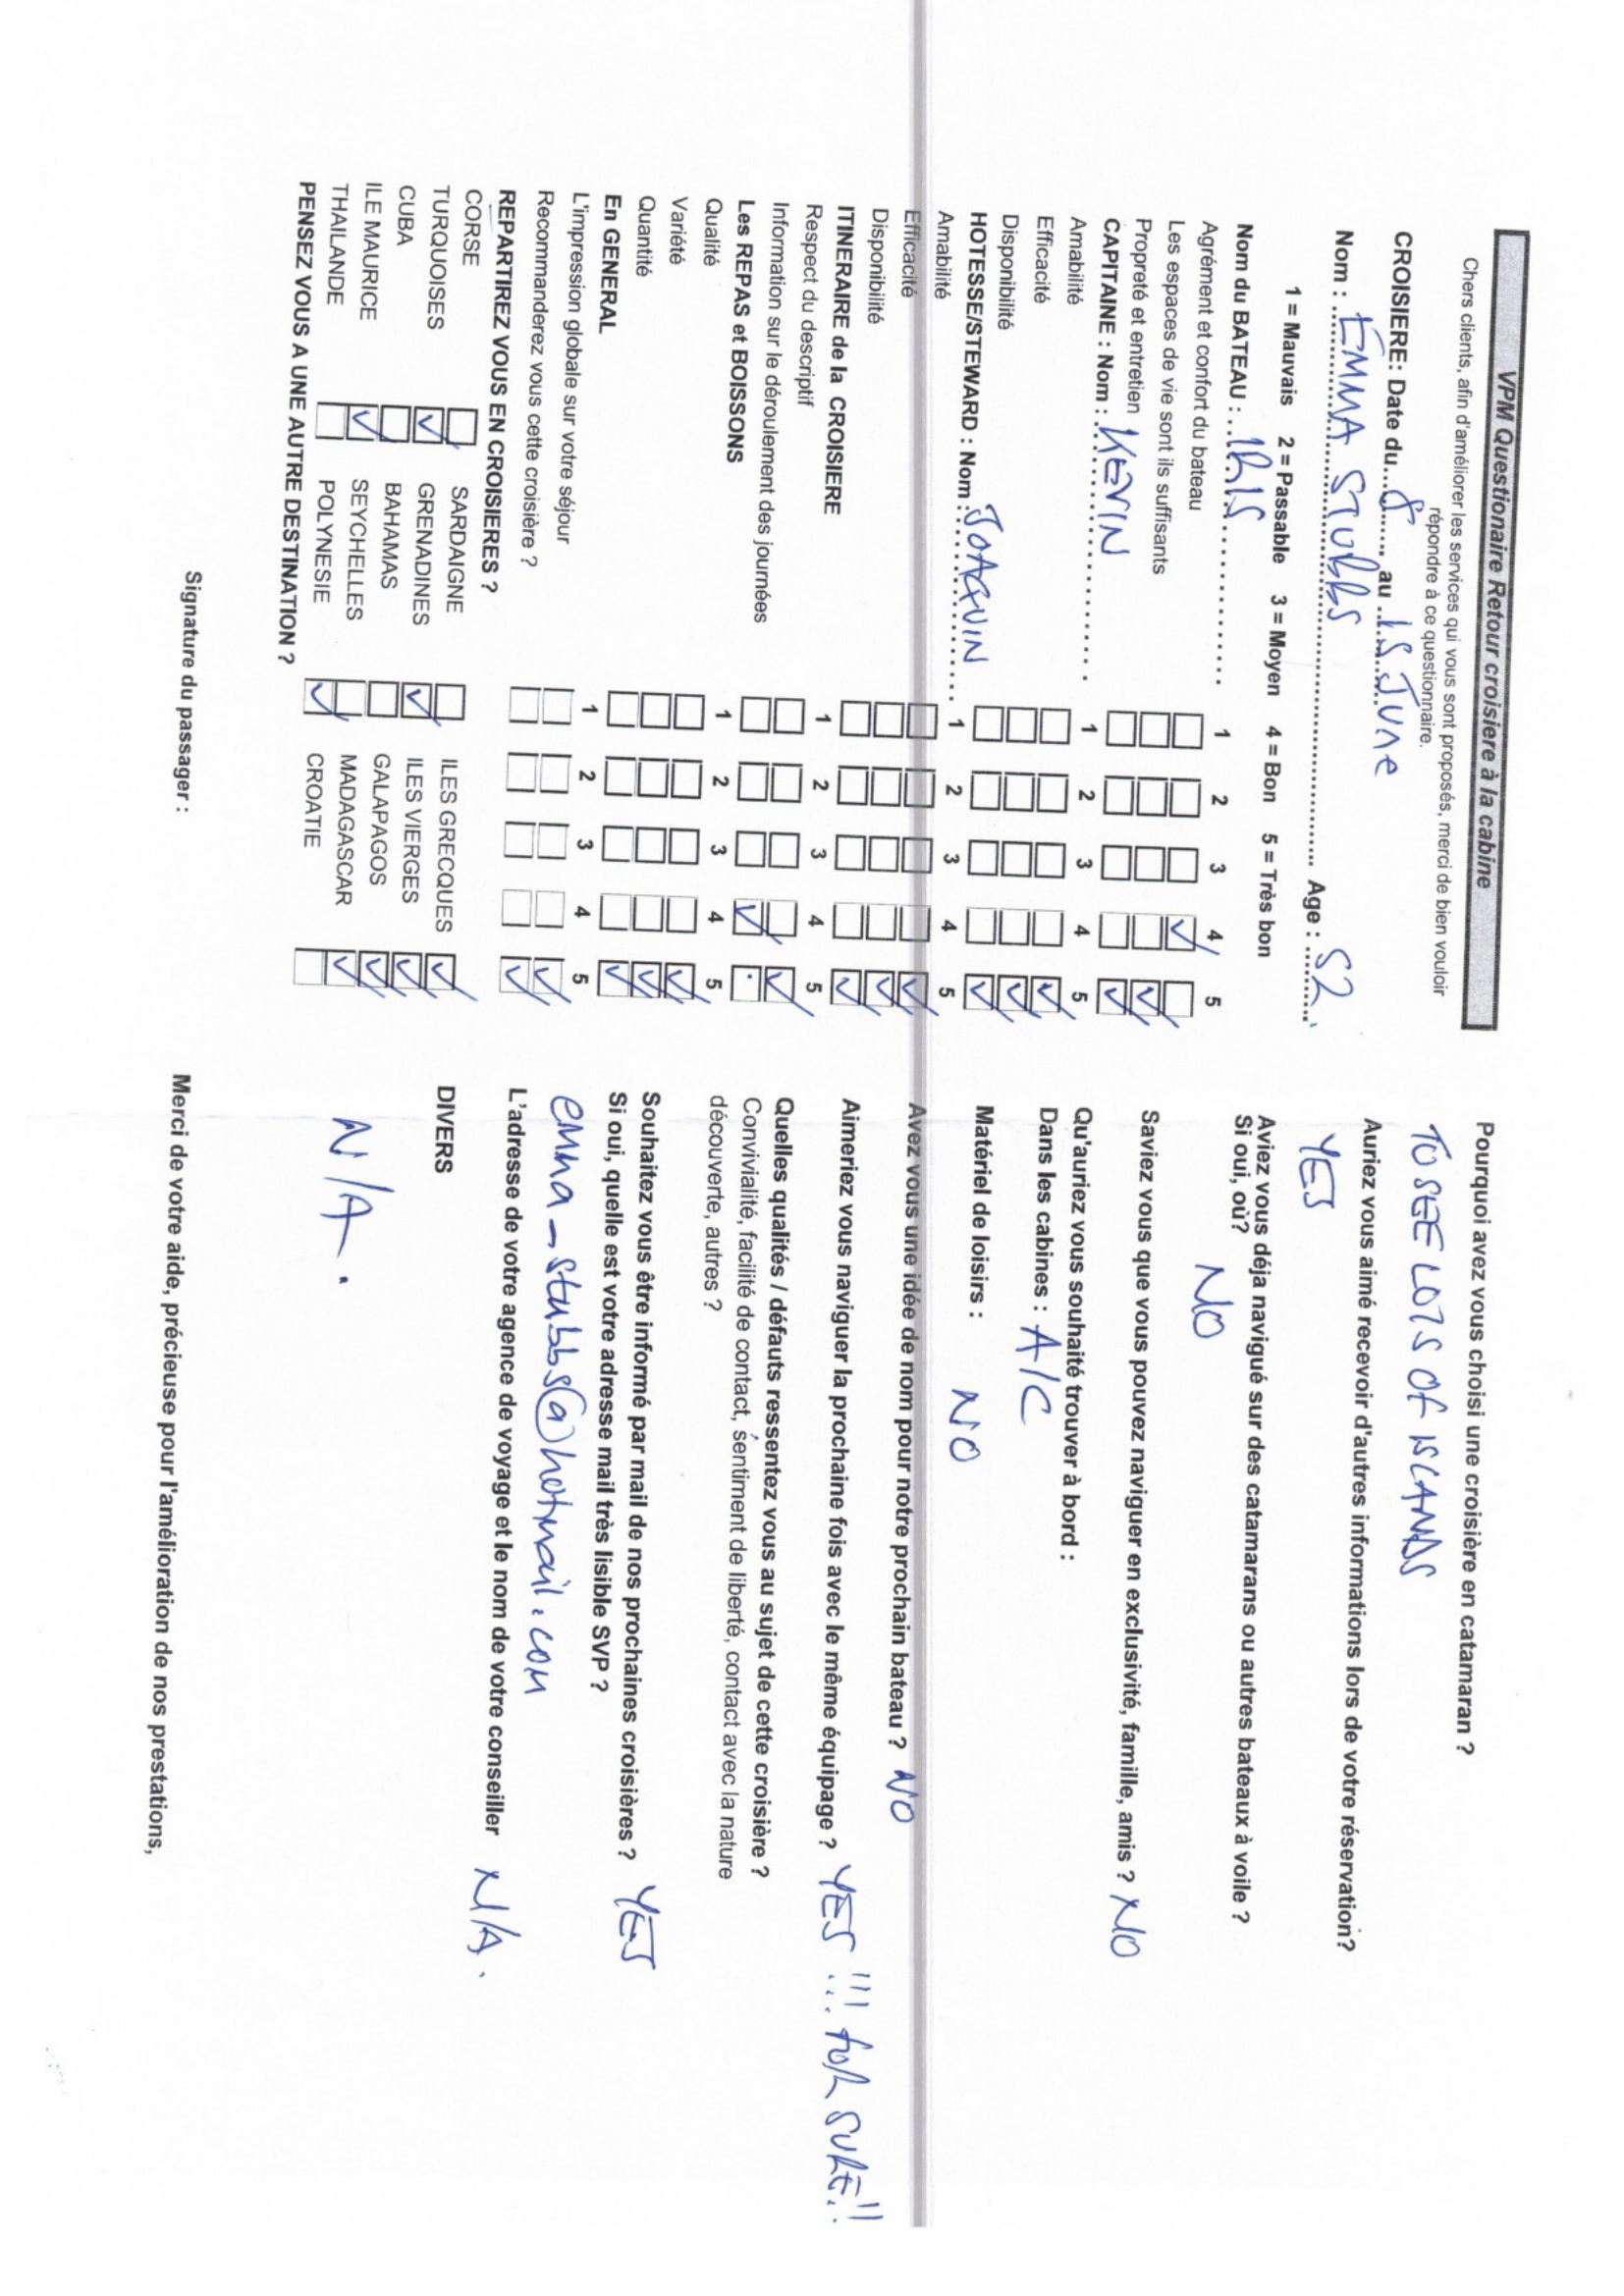 VPM Questionaire Retour croisiere à la cabine
Chers clients, afin d'améliorer les services qui vous sont proposés, merci de bien vouloir
répondre à ce questionnaire.
CROISIERE: Date du....8....... au ..15 June
Nom : EMMA STUBBS Age : 52
1 = Mauvais 2 = Passable 3 = Moyen 4 = Bon 5 = Très bon
Nom du BATEAU : IRIS 1 2 3 4 5
Agrément et confort du bateau ☐ ☐ ☐ ☑ ☐
Les espaces de vie sont ils suffisants ☐ ☐ ☐ ☐ ☑
Propreté et entretien ☐ ☐ ☐ ☐ ☑
CAPITAINE : Nom : KEVIN 1 2 3 4 5
Amabilité ☐ ☐ ☐ ☐ ☑
Efficacité ☐ ☐ ☐ ☐ ☑
Disponibilité ☐ ☐ ☐ ☐ ☑
HOTESSE/STEWARD : Nom : JOAQUIN 1 2 3 4 5
Amabilité ☐ ☐ ☐ ☐ ☑
Efficacité ☐ ☐ ☐ ☐ ☑
Disponibilité ☐ ☐ ☐ ☐ ☑
ITINERAIRE de la CROISIERE 1 2 3 4 5
Respect du descriptif ☐ ☐ ☐ ☐ ☑
Information sur le déroulement des journées ☐ ☐ ☐ ☑ ☐
Les REPAS et BOISSONS 1 2 3 4 5
Qualité ☐ ☐ ☐ ☐ ☑
Variété ☐ ☐ ☐ ☐ ☑
Quantité ☐ ☐ ☐ ☐ ☑
En GENERAL 1 2 3 4 5
L'impression globale sur votre séjour ☐ ☐ ☐ ☐ ☑
Recommanderez vous cette croisière ? ☐ ☐ ☐ ☐ ☑
REPARTIREZ VOUS EN CROISIERES ?
CORSE ☐ SARDAIGNE ☐ ILES GRECQUES ☑
TURQUOISES ☑ GRENADINES ☑ ILES VIERGES ☑
CUBA ☐ BAHAMAS ☐ GALAPAGOS ☑
ILE MAURICE ☑ SEYCHELLES ☐ MADAGASCAR ☑
THAILANDE ☐ POLYNESIE ☑ CROATIE ☐
PENSEZ VOUS A UNE AUTRE DESTINATION ?
Signature du passager :
Pourquoi avez vous choisi une croisière en catamaran ?
TO SEE LOTS OF ISLANDS
Auriez vous aimé recevoir d'autres informations lors de votre réservation?
YES
Aviez vous déja navigué sur des catamarans ou autres bateaux à voile ?
Si oui, où?
NO
Saviez vous que vous pouvez naviguer en exclusivité, famille, amis ? NO
Qu'auriez vous souhaité trouver à bord :
Dans les cabines : A/C
Matériel de loisirs : NO
Avez vous une idée de nom pour notre prochain bateau ? NO
Aimeriez vous naviguer la prochaine fois avec le même équipage ? YES !!! FOR SURE!!
Quelles qualités / défauts ressentez vous au sujet de cette croisière ?
Convivialité, facilité de contact, sentiment de liberté, contact avec la nature
découverte, autres ?
Souhaitez vous être informé par mail de nos prochaines croisières ? YES
Si oui, quelle est votre adresse mail très lisible SVP ?
emma_stubbs@hotmail.com
L'adresse de votre agence de voyage et le nom de votre conseiller N/A.
DIVERS
N/A.
Merci de votre aide, précieuse pour l'amélioration de nos prestations,